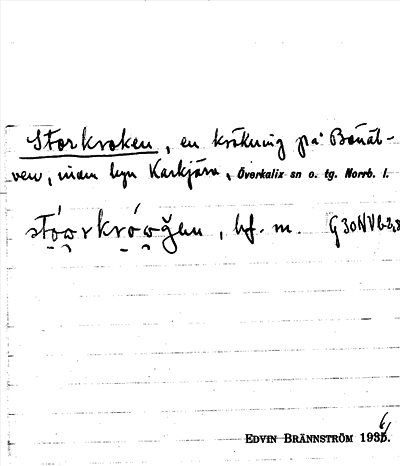 Storkroken, en krökning på Bönäl-
ven, inom byn Karkjärv, Överkalix sn o. tg. Norrb. l.
stó̯ω̯rkró̯ω̯ǧen, bf. m. G30NVb2,3
EDVIN BRÄNNSTRÖM 1936.